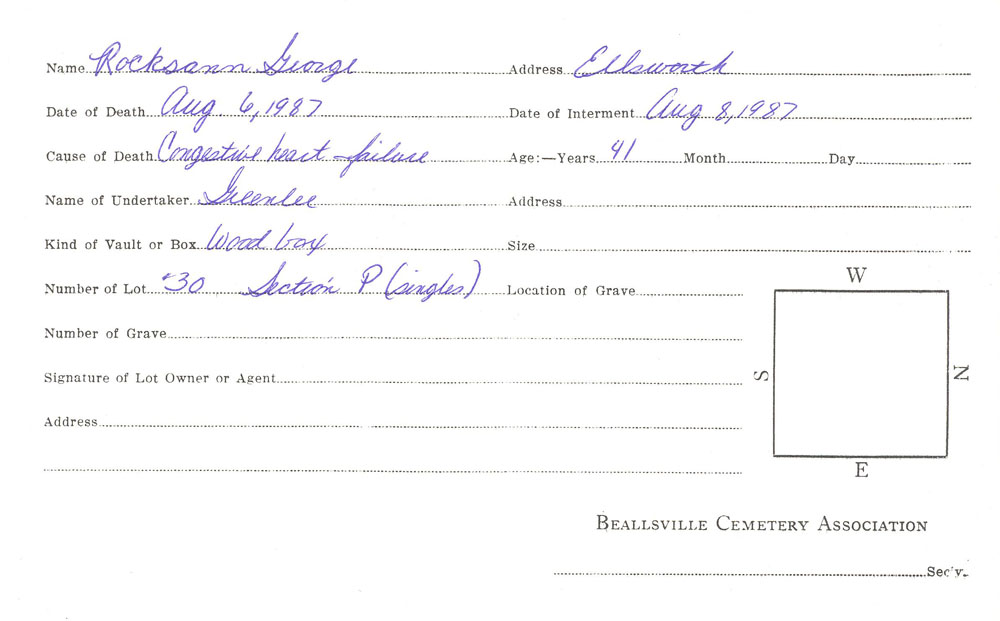 Name Rocksann George Address Ellsworth
Date of Death Aug 6, 1987 Date of Interment Aug 8, 1987
Cause of Death Congestive heart failure Age:—Years 41 Month Day
Name of Undertaker Greenlee Address
Kind of Vault or Box Wood box Size
Number of Lot #30 Section P (singles) Location of Grave
W
Number of Grave
Signature of Lot Owner or Agent
S N
Address
E
BEALLSVILLE CEMETERY ASSOCIATION
Sec'y.